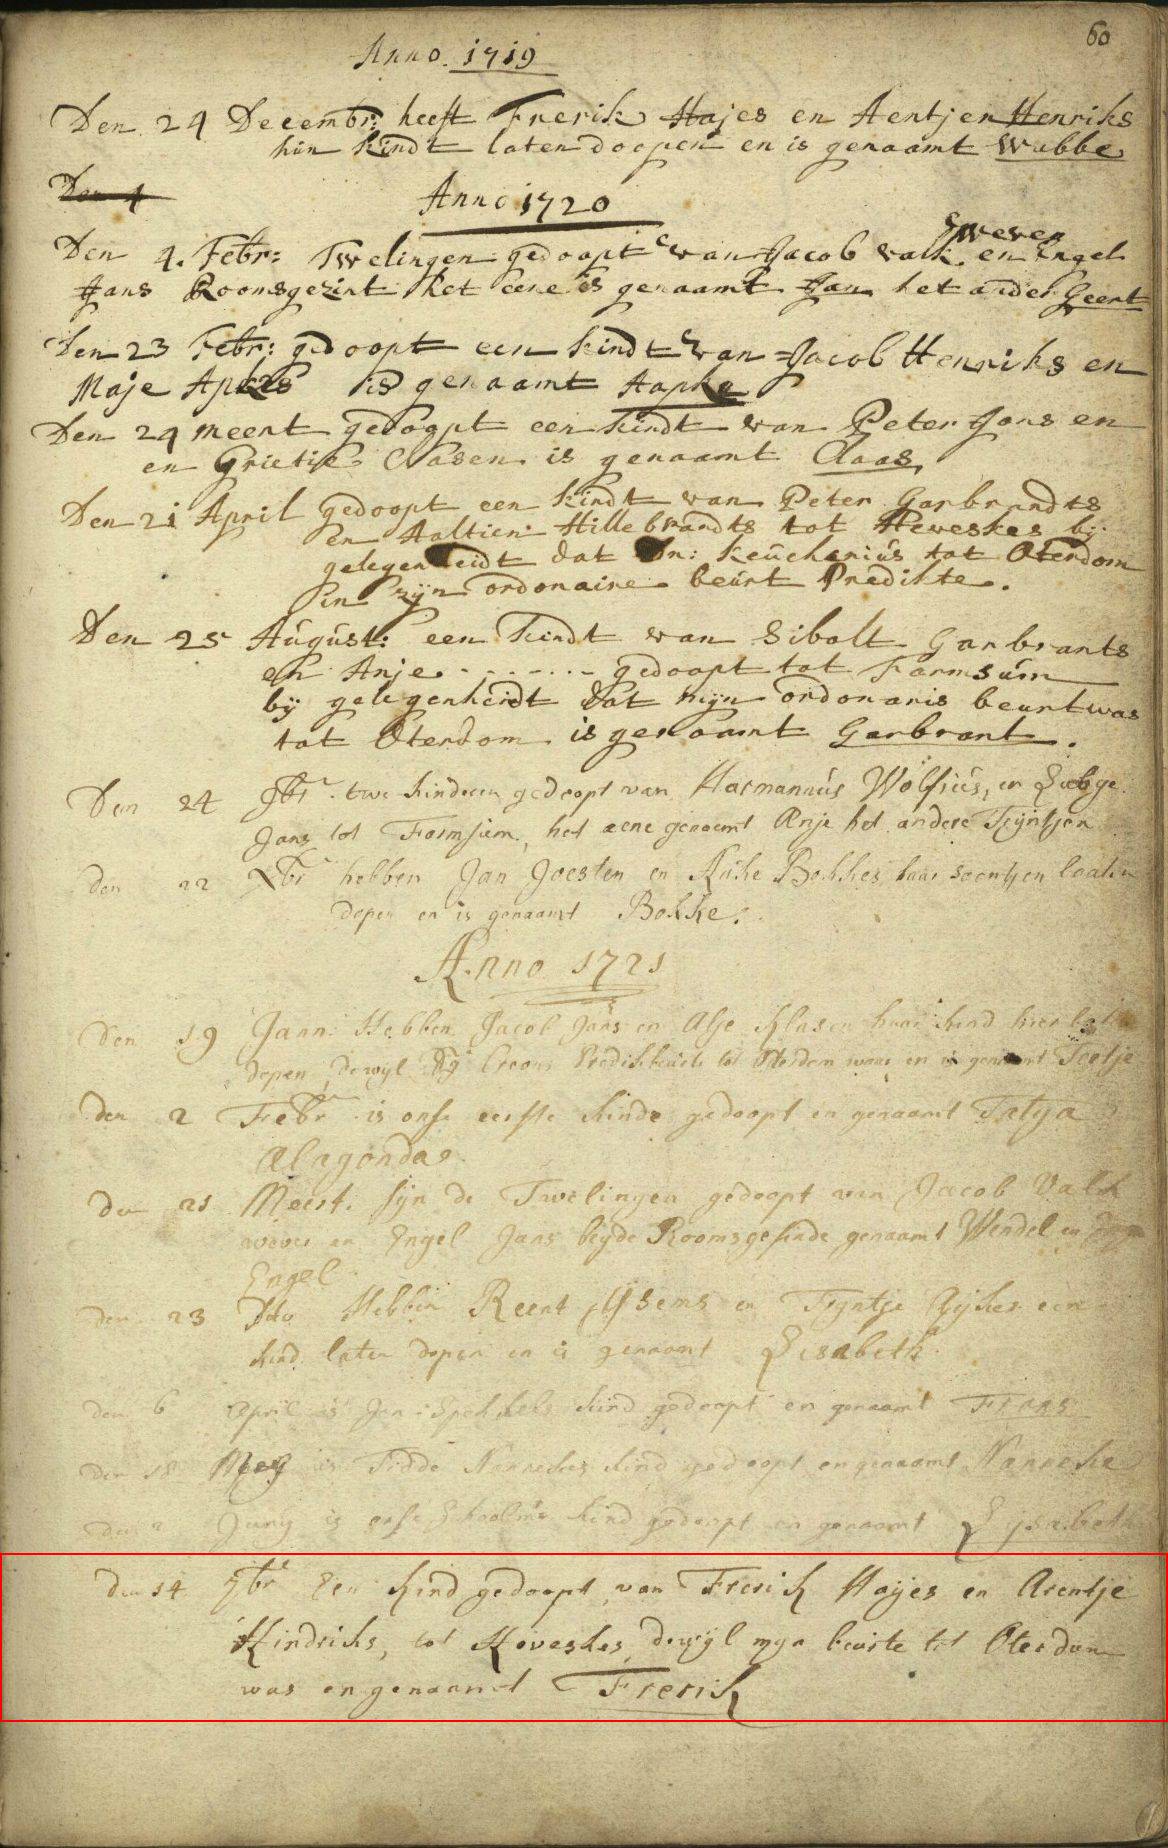 60
Anno. 1719
Den 24 Decembr: heeft Frerik Hajes en Aentjen Henriks
hun kindt laten doopen en is genaamt Wubbe
Den 4
Anno 1720
weven
Den 4. Febr: Twelingen gedoopt van Jacob valk. en Engel
Hans Roomsgezint het eene is genaamt Jan het ander Geert
Den 23 Febr: gedoopt een kindt van Jacob Henriks en
Maje Apkes is genaamt Aapke
Den 24 meert gedoopt een kindt van Peter Jans en
en Grietie Clasen is genaamt Claas,
Den 21 April gedoopt een kindt van Peter Garbrandts
en Aaltien Hillebrandts tot Heveskes bij
gelegenheidt dat Dn: Keuchenius tot Oterdom
in zijn ordonaire beurt Predikte.
Den 25 August: een kindt van Sibolt Garbrants
en Anje - - - - - - gedoopt tot Farmsum
bij gelegenheidt dat mijn ordonaris beurt was
tot Oterdom is genaamt Garbrant.
Den 24 9br twe kinderen gedoopt van Harmannus Wolfius, en Eebge
Jans tot Farmsum, het eene genaemt Anje het andere Trijntjen
den 22 Xbr hebben Jan Joesten en Auke Bokkes haar soontjen laaten
dopen en is genaamt Bokke.
Anno 1721
Den 19 Jann. Hebben Jacob Jans en Alje Klasen haar kind hier laten
dopen, dewyl prediksbeurte tot Oterdom was en is genaamt Tietje
den 2 Febr is onse eerste kinde gedoopt en genaamt Tatya
Alagonda
den 21 Meert. syn de Twelingen gedoopt van Jacob Valck
wever en Engel Jans beyde Roomsgesinde genaamt Wendel en
Engel
den 23 Dito Hebben Reent Ysems en Tryntje Rijkes een
kind laten dopen en is genaamt Lisabeth
den 6 April is Jan Spekkers kind gedoopt en genaamt Frans
den 18 Mey is Tidde Nannekes kind gedoopt en genaamt Nanneke
den 2 Juny is onse Schoolmr kind gedoopt en genaamt Lysabeth
den 14 7br Een kind gedoopt, van Frerick Hayes en Arentje
Hindriks, tot Heveskes, dewyl myn beurte tot Oterdum
was en genaamt Frerick